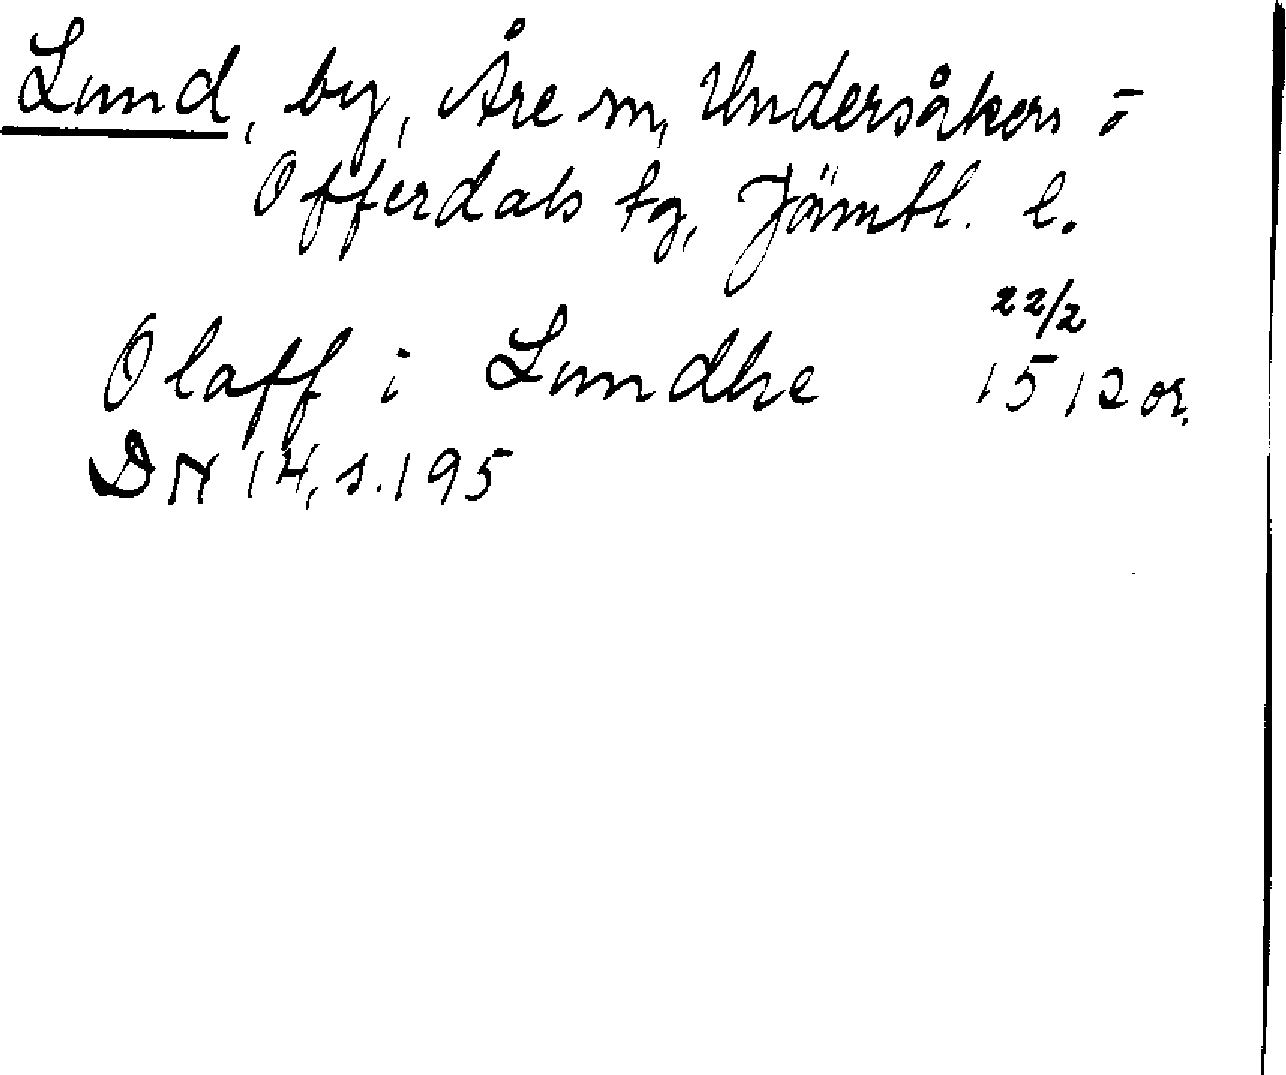 Lund, by, Åre sn, Undersåkers o
Offerdals tg, Jämtl. l.
22/2
Olaff i Lundhe 1512 or.
DN 14, s. 195